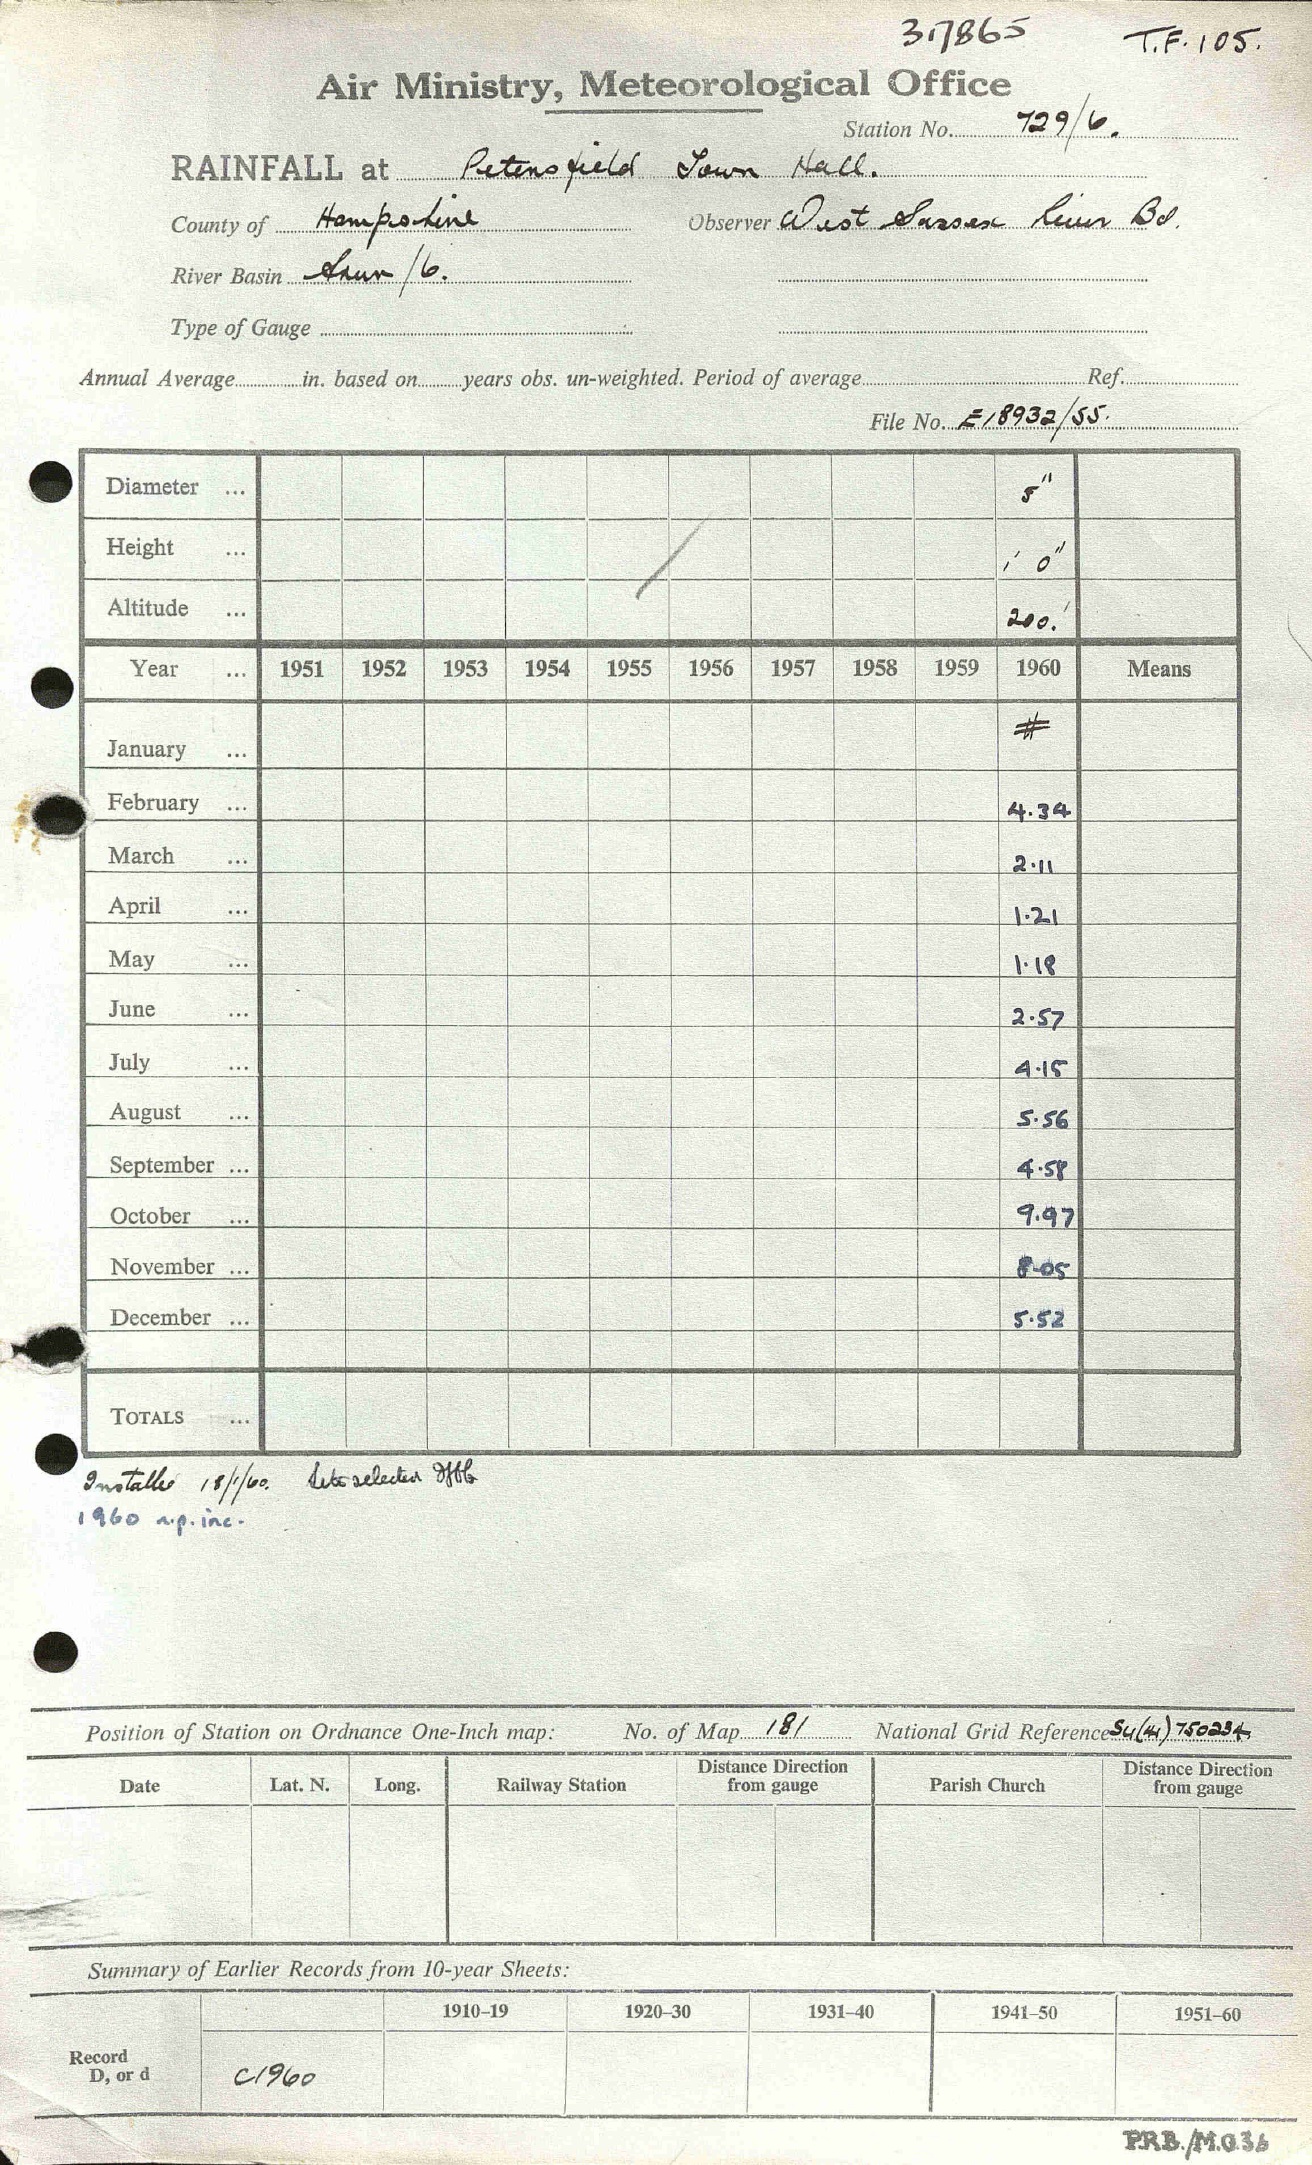 317865
T.F. 105.
Air Ministry, Meteorological Office
Station No. 729/6.
RAINFALL at Petersfield Town Hall.
County of Hampshire Observer West Sussex River Bd.
River Basin Arun/6.
Type of Gauge
Annual Average in. based on years obs. un-weighted. Period of average Ref.
File No. E18932/55.
Diameter ... 5"
Height ... 1' 0"
Altitude ... 200.'
Year ... 1951 1952 1953 1954 1955 1956 1957 1958 1959 1960 Means
January ... #
February ... 4.34
March ... 2.11
April ... 1.21
May ... 1.18
June ... 2.57
July ... 4.15
August ... 5.56
September ... 4.58
October ... 9.97
November ... 8.05
December ... 5.52
TOTALS ...
Installed 18/1/60. Site selected
1960 n.p. inc.
Position of Station on Ordnance One-Inch map: No. of Map 181 National Grid Reference SU(41)750234
Date Lat. N. Long. Railway Station Distance Direction from gauge Parish Church Distance Direction from gauge
Summary of Earlier Records from 10-year Sheets:
1910–19 1920–30 1931–40 1941–50 1951–60
Record
D, or d C1960
P.R.B./M.O.36